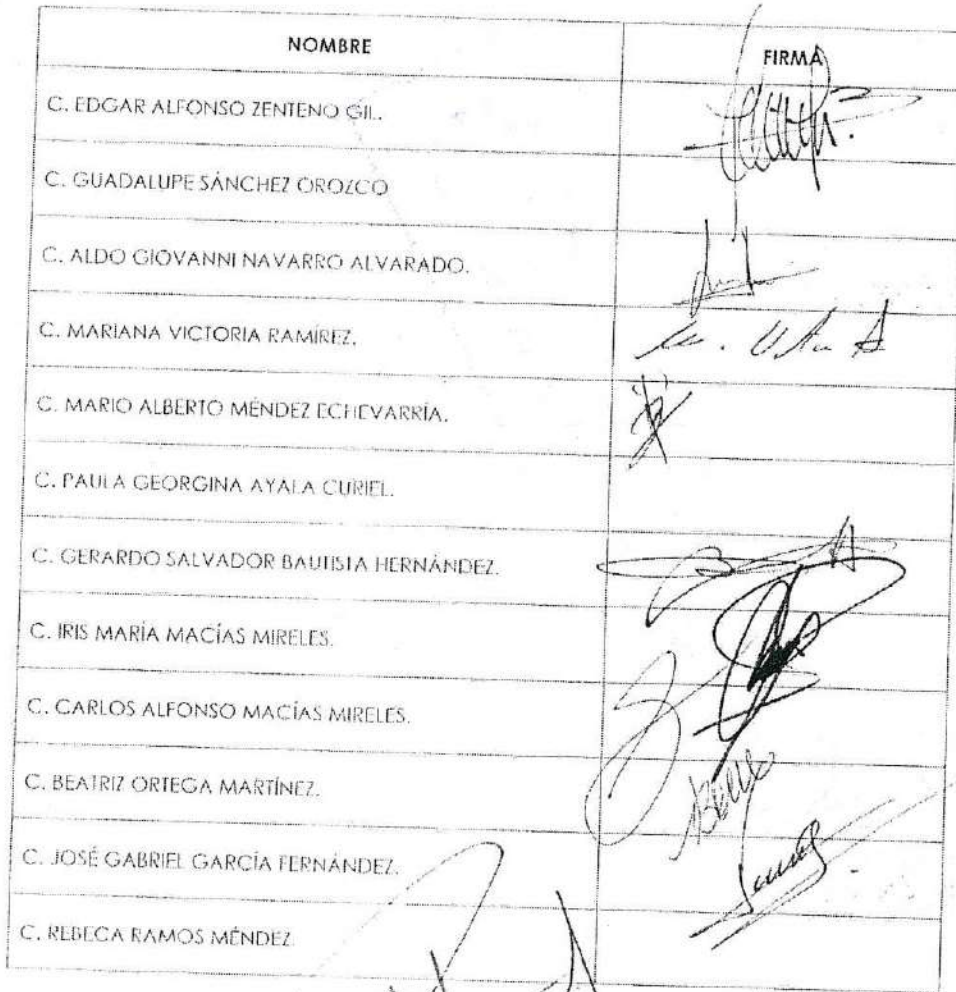 NOMBRE FIRMA
C. EDGAR ALFONSO ZENTENO GIL.
C. GUADALUPE SÁNCHEZ OROZCO
C. ALDO GIOVANNI NAVARRO ALVARADO.
C. MARIANA VICTORIA RAMÍREZ.
C. MARIO ALBERTO MÉNDEZ ECHEVARRÍA.
C. PAULA GEORGINA AYALA CURIEL.
C. GERARDO SALVADOR BAUTISTA HERNÁNDEZ.
C. IRIS MARÍA MACÍAS MIRELES.
C. CARLOS ALFONSO MACÍAS MIRELES.
C. BEATRIZ ORTEGA MARTÍNEZ.
C. JOSÉ GABRIEL GARCÍA FERNÁNDEZ.
C. REBECA RAMOS MÉNDEZ